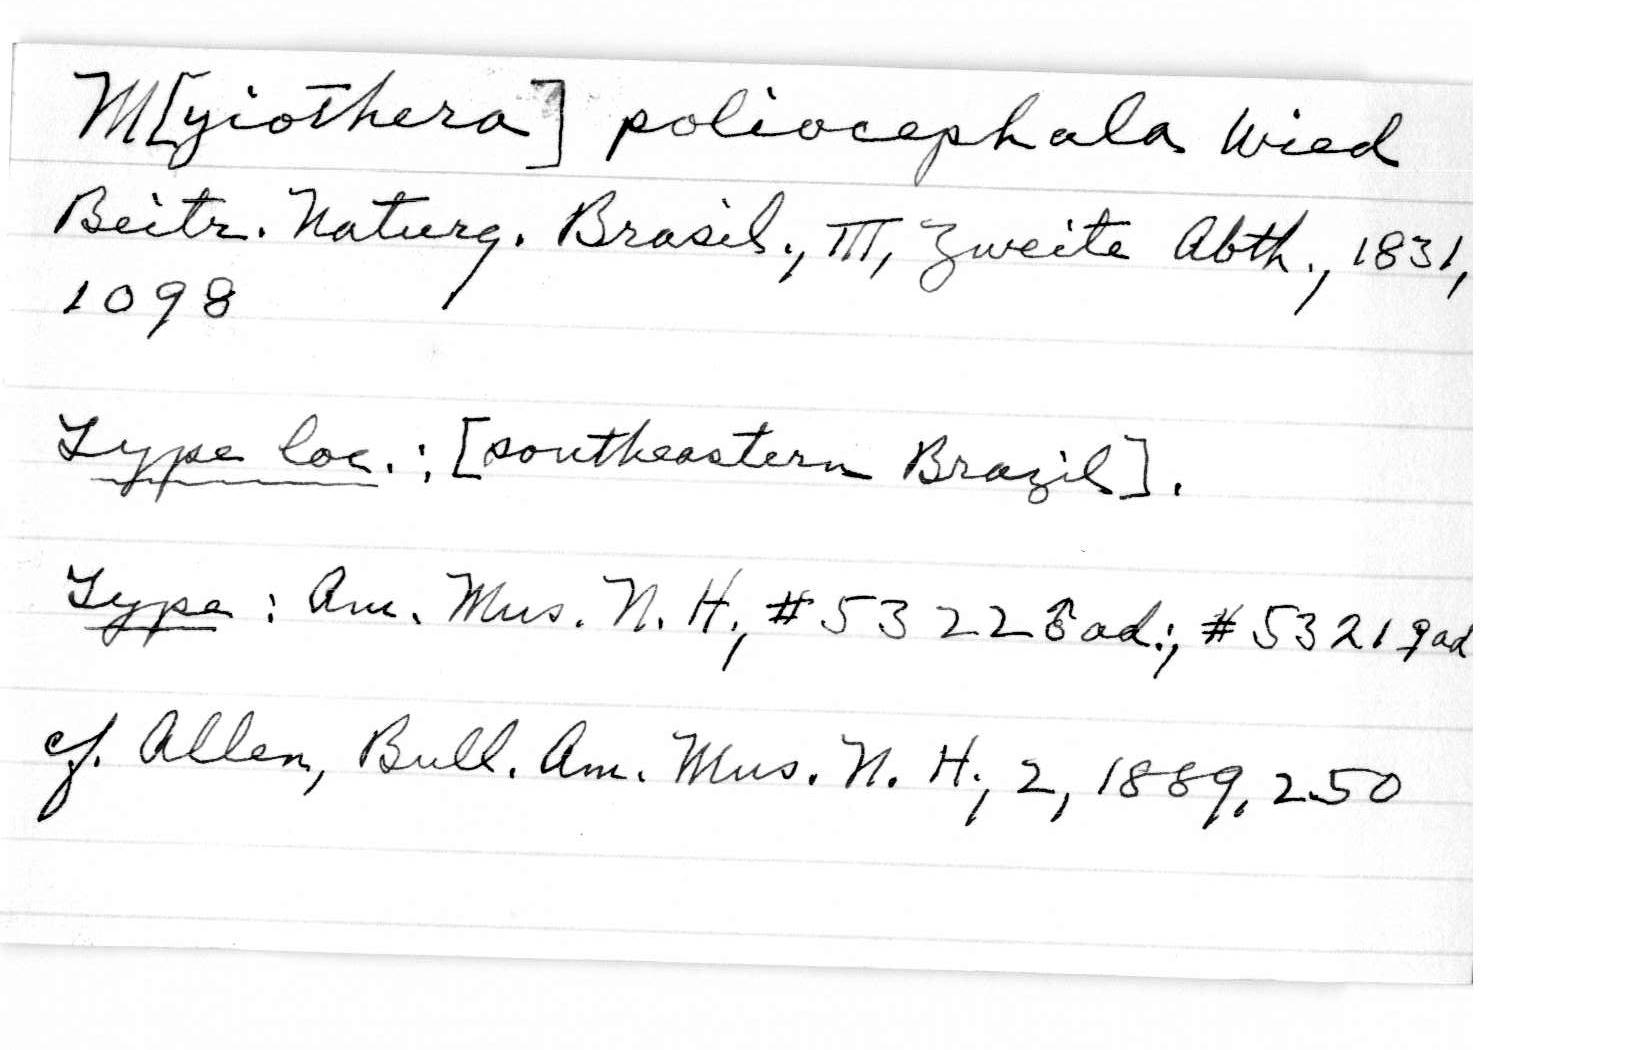 M[yiothera] poliocephala Wied
Beitr. Naturg. Brasil., III, Zweite Abth., 1831,
1098
Type loc.: [southeastern Brazil].
Type: Am. Mus. N. H., #5322 ♂ ad.; #5321 ♀ ad
cf. Allen, Bull. Am. Mus. N. H., 2, 1889, 250